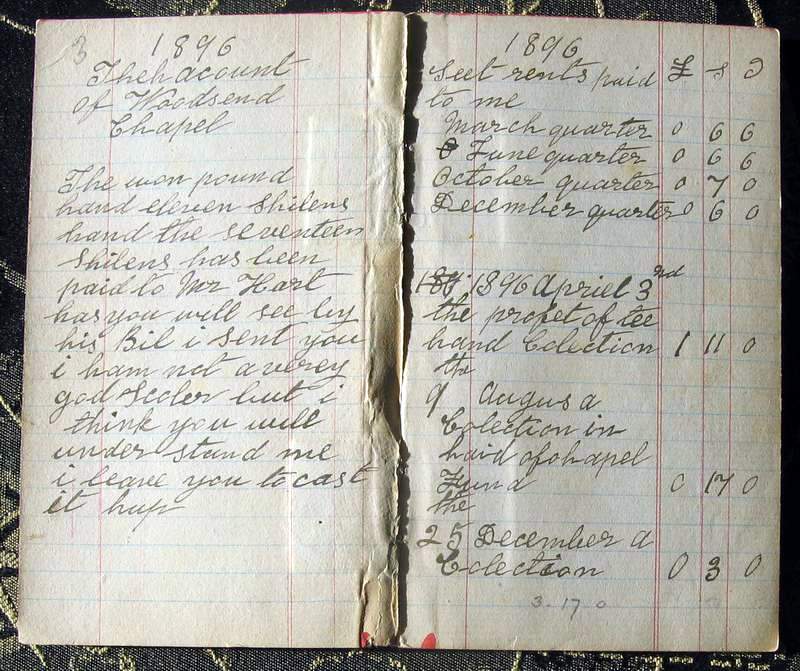 3
1896
Theh acount
of Woodsend
Chapel
The won pound
hand eleven shilens
hand the seventeen
shilens has been
paid to Mr Hart
has you will see by
his Bil i sent you
i ham not a verey
god scoler but i
think you will
under stand me
i leave you to cast
it hup
1896
Seet rents paid £ s D
to me
March quarter 0 6 6
June quarter 0 6 6
October quarter 0 7 0
December quarter 0 6 0
1896 Apriel 3rd
the profet of tee
hand Colection 1 11 0
the
9 Augus a
Colection in
haid of chapel
Fund 0 17 0
the
25 December a
Colection 0 3 0
3.17.0